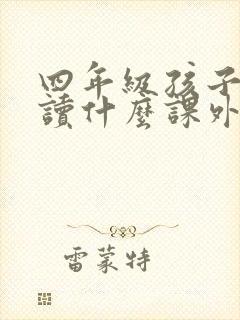 四年級孩子
讀什麼課外
雷蒙特